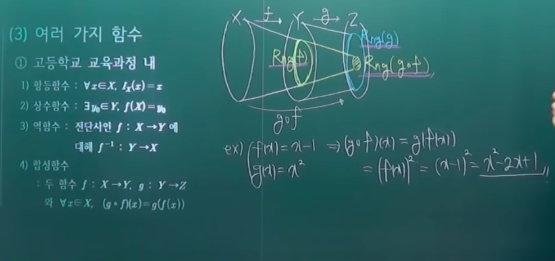 (3) 여러 가지 함수
① 고등학교 교육과정 내
1) 항등함수 : ∀x∈X, I_X(x)=x
2) 상수함수 : ∃y₀∈Y, f(X)=y₀
3) 역함수 : 전단사인 f : X→Y 에
대해 f⁻¹ : Y→X
4) 합성함수
: 두 함수 f : X→Y, g : Y→Z
와 ∀x∈X, (g∘f)(x)=g(f(x))
X f Y g Z
Rng(g)
Rng f
Rng(g∘f)
g∘f
ex) f(x)=x-1 ⇒ (g∘f)(x) = g(f(x))
g(x)=x² = (f(x))² = (x-1)² = x²-2x+1